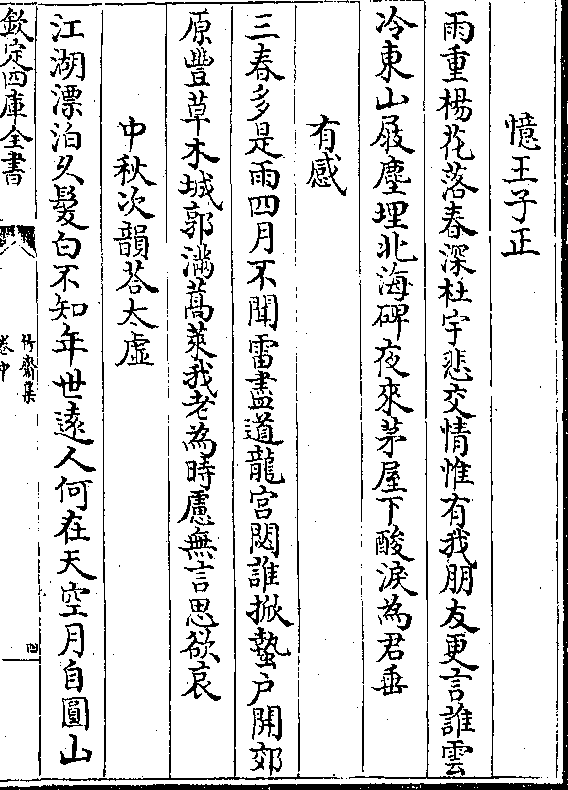 憶王子正
雨重楊花落春深杜宇悲交情惟有我朋友更言誰雲
冷東山屐塵埋北海碑夜來茅屋下酸淚為君垂
有感
三春多是雨四月不聞雷盡道龍宮閟誰掀蟄户開郊
原豐草木城郭滿蒿萊我老為時慮無言思欲哀
中秋次韻荅太虚
江湖漂泊久髮白不知年世遠人何在天空月自圓山
欽定四庫全書
竹齋集
卷中
四